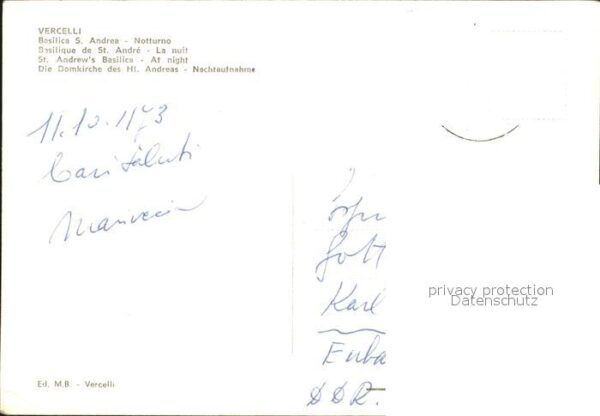 VERCELLI
Basilica S. Andrea - Notturno
Basilique de St. André - La nuit
St. Andrew's Basilica - At night
Die Domkirche des Hl. Andreas - Nachtaufnahme
11.10.1973
Cari Saluti
Gott
Karl
DDR.
privacy protection
Datenschutz
Ed. M.B. - Vercelli